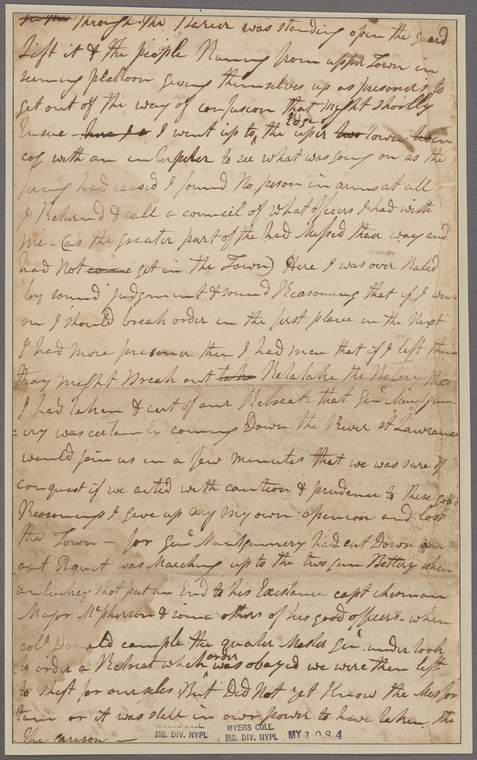 through the Barier was standing open the guard
Left it & the people Runing from upper Town in
seeming platoon giving themselves up as prisoners to
get out of the way of confusion that might shortly
Ensue I went up to the Edge of the uper town
cog with an enturpiter to see what was going on as the
firing had ceased I found No person in arms at all
I Returnd & call a council of what officers I had with
me - (as the greater part of the had Missed their way and
had Not got in the Town) Here I was over Ruled
by sound judgment & sound Reasoning that if I went
on I should break order in the first place in the Next
I had more prisoner then I had men that if I left them
thay might Break out Retatake the Batery
I had taken & cut of our Retreat that Genl Mungum
ery was certainly coming Down the River St Lawrance
would join us in a few menutes that we was sure of
conquest if we acted with caution & prudence to these good
Reasonings I give up my my own openion and lost
the Town - for Genl Muntgumery had cut Down
out Pequit was Marching up to the two gun Battery when
an unluckey shot put an End to his Existance capt cheesman
Major McPherson & some others of his good officers - when
colo Donald campble the quater Master Genl under took
to order a Retreat which order was obayed we were then left
to shift for ourselves But Did Not yet Know the Misfor
tune or it was still in owr power to have taken the
the garison -
MS. DIV. NYPL
MYERS COLL.
MS. DIV. NYPL
MY 1984